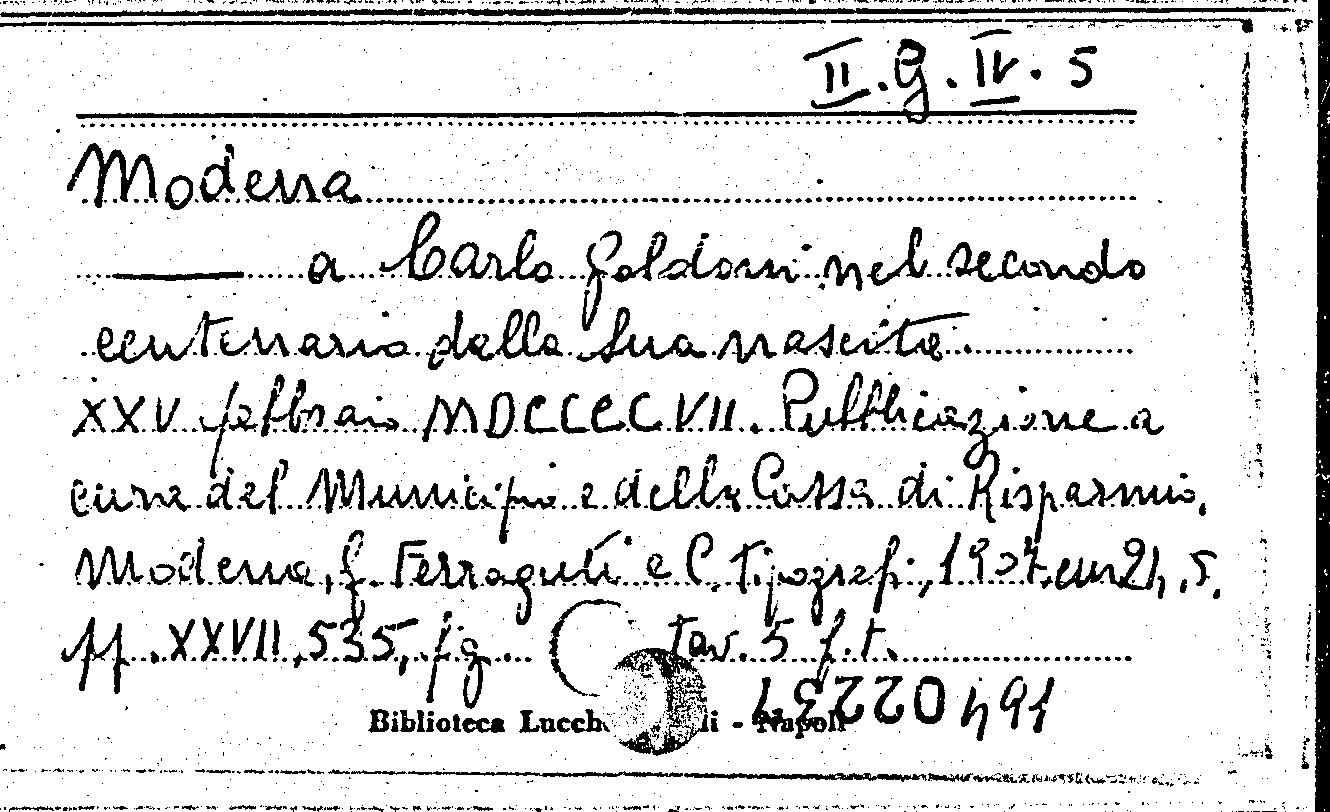 II. G. IV. 5
Modena
——— a Carlo Goldoni nel secondo
centenario dalla sua nascita.
XXV febbraio MDCCCCVII. Pubblicazione a
cura del Municipio e della Cassa di Risparmio.
Modena, G. Ferraguti e C. Tipografi, 1907. cm 21,5.
pp. XXVII, 535, fig. tav. 5 f.t.
Biblioteca - Napoli